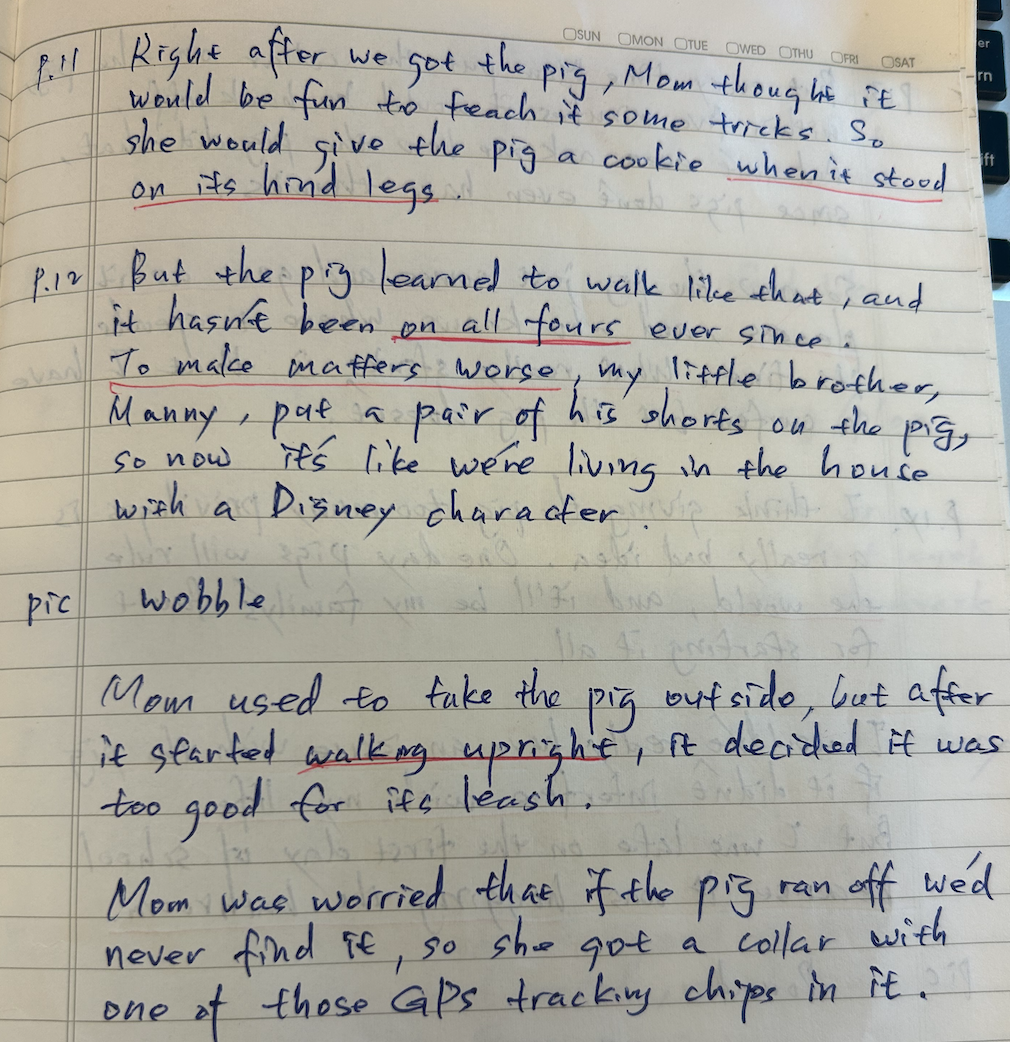 SUN MON TUE WED THU FRI SAT
P.11 Right after we got the pig, Mom thought it
would be fun to teach it some tricks. So
she would give the pig a cookie when it stood
on its hind legs.
P.12 But the pig learned to walk like that, and
it hasn't been on all fours ever since.
To make matters worse, my little brother,
Manny, put a pair of his shorts on the pig,
so now it's like we're living in the house
with a Disney character.
pic wobble
Mom used to take the pig outside, but after
it started walking upright, it decided it was
too good for its leash.
Mom was worried that if the pig ran off we'd
never find it, so she got a collar with
one of those GPS tracking chips in it.